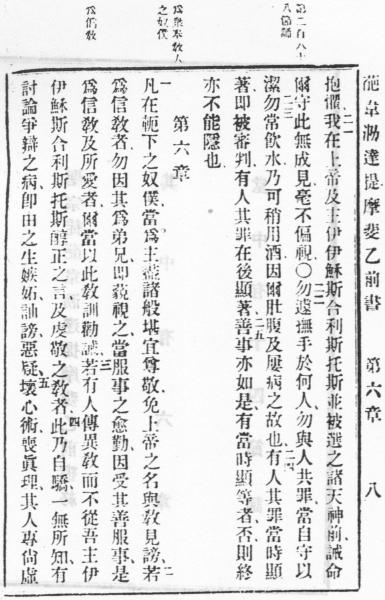 葩韋泐達提摩斐乙前書 第六章 八
第二百八十八節誦
抱懼二一我在上帝及主伊伊穌斯合利斯托斯並被選之諸天神前誡命
爾守此無成見毫不偏視○二二勿遽撫手於何人勿與人共罪當自守以
潔二三勿常飲水乃可稍用酒因爾肚腹及屢病之故也二四有人其罪當時顯
著即被審判有人其罪在後顯著二五善事亦如是有當時顯等者否則終
亦不能隱也
第六章
爲衆奉教人之奴僕
一凡在軛下之奴僕當爲主盡諸般堪宜尊敬免上帝之名與教見謗二若
爲信教者勿因其爲弟兄即藐視之當服事之愈勤因受其善服事是
爲僞教
爲信教及所愛者爾當以此教訓勸誡三若有人傳異教而不從吾主伊
伊穌斯合利斯托斯醇正之言及虔敬之教者四此乃自驕一無所知有
討論爭辯之病卽由之生嫉妬訕謗惡疑五壞心術喪眞理其人專尚虛